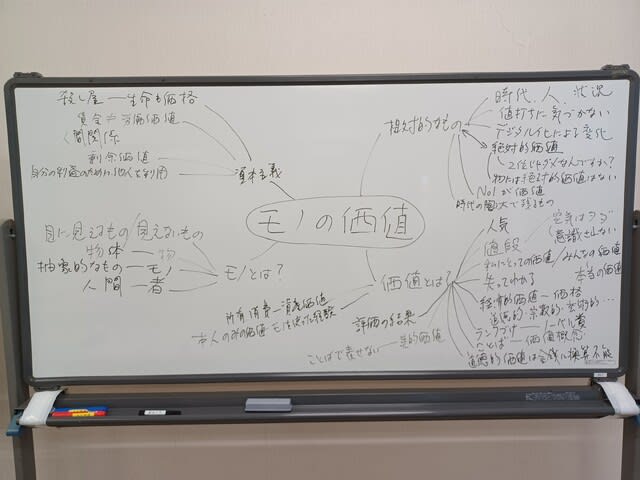 モノの価値
資本主義
殺し屋 ― 生命も価格
賃金≠労働価値
人間関係
剰余価値
自分の利益のために他人を利用
相対的なもの
時代、人、状況
値打ちに気づかない
デジタル化による変化
絶対的価値
2位じゃダメなんですか?
物には絶対的価値はない
No1が価値
モノとは?
目に見えるもの/見えないもの
物体 ― 物
抽象的なもの ― モノ
人間 ― 者
価値とは?
人気
空気はタダ
意識さしない
値段
私にとっての価値/みんなの価値
本当の価値
失ってわかる
経済的価値 ― 価格
道徳的・宗教的・芸術的…
ランクづけ ― ノーベル賞
ことば ― 価値概念
道徳的価値は金銭に換算不能
評価の結果
ことばで表せない ― 美的価値
所有 消費 ― 消費価値
本人のみの価値